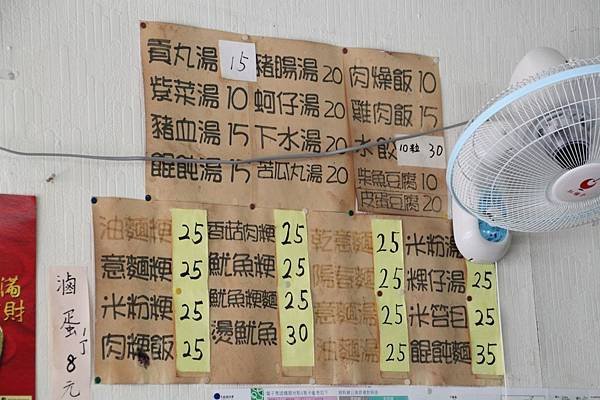 貢丸湯 15
紫菜湯 10
豬血湯 15
餛飩湯 15
豬腸湯 20
蚵仔湯 20
下水湯 20
苦瓜丸湯 20
肉燥飯 10
雞肉飯 15
水餃 10粒 30
柴魚豆腐 10
皮蛋豆腐 20
油麵粳 25
意麵粳 25
米粉粳 25
肉粳飯 25
香菇肉粳 25
魷魚粳 25
魷魚粳麵 25
燙魷魚 30
乾意麵 25
陽春麵 25
意麵湯 25
油麵湯 25
米粉湯
粿仔湯 25
米苔目 25
餛飩麵 35
滷蛋 1丁 8元
滿
財